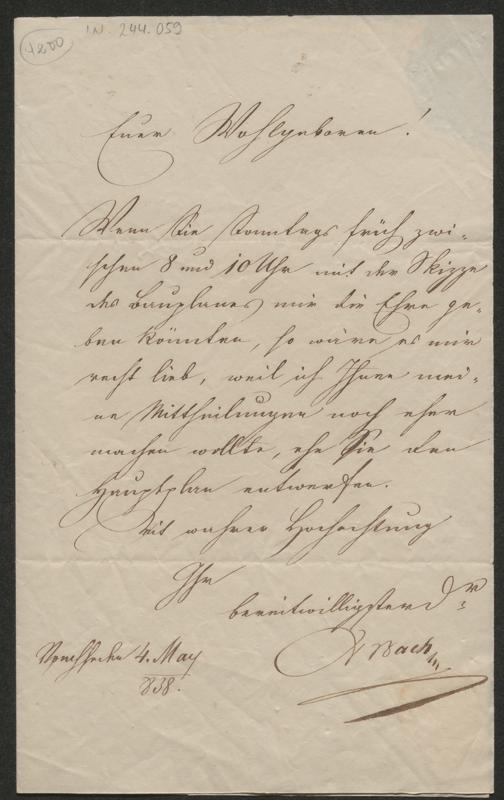 4200
I.N. 244.059
Euer Wohlgeboren!
Wenn Sie Sonntags früh zwi-
schen 8 und 10 Uhr mit der Skizze
des Bauplanes mir die Ehre ge-
ben könnten, so wäre es mir
recht lieb, weil ich Ihnen mei-
ne Mittheilungen noch eher
machen wollte, ehe Sie den
Hauptplan entwerfen.
Mit wahrer Hochachtung
Ihr
bereitwilligster Dr
Bach
4. May
838.